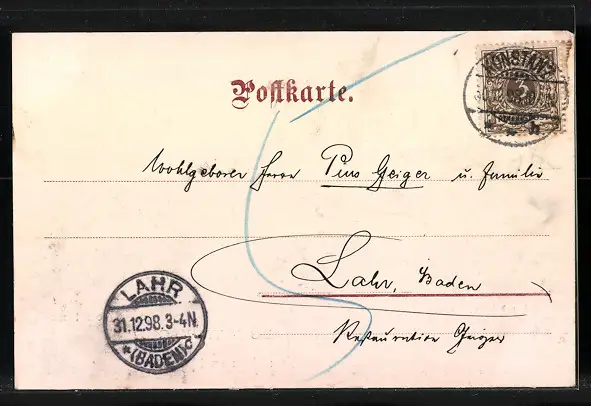 Postkarte.
KONSTANZ
3
Wohlgeboren Herrn Pius Geiger u. Familie
Lahr, Baden
LAHR
31.12.98.3-4N.
*(BADEN)c
Restauration Geiger